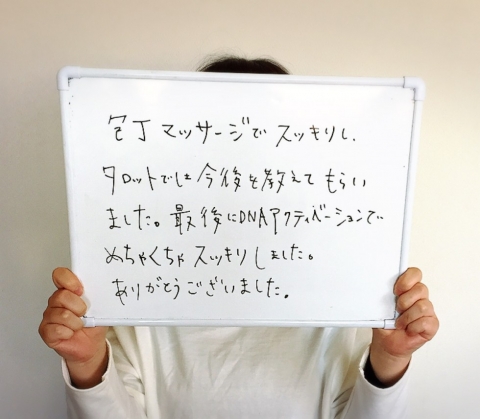 包丁マッサージでスッキリし、
タロットでは今後を教えてもらい
ました。最後にDNAアクティベーションで
めちゃくちゃスッキリしました。
ありがとうございました。